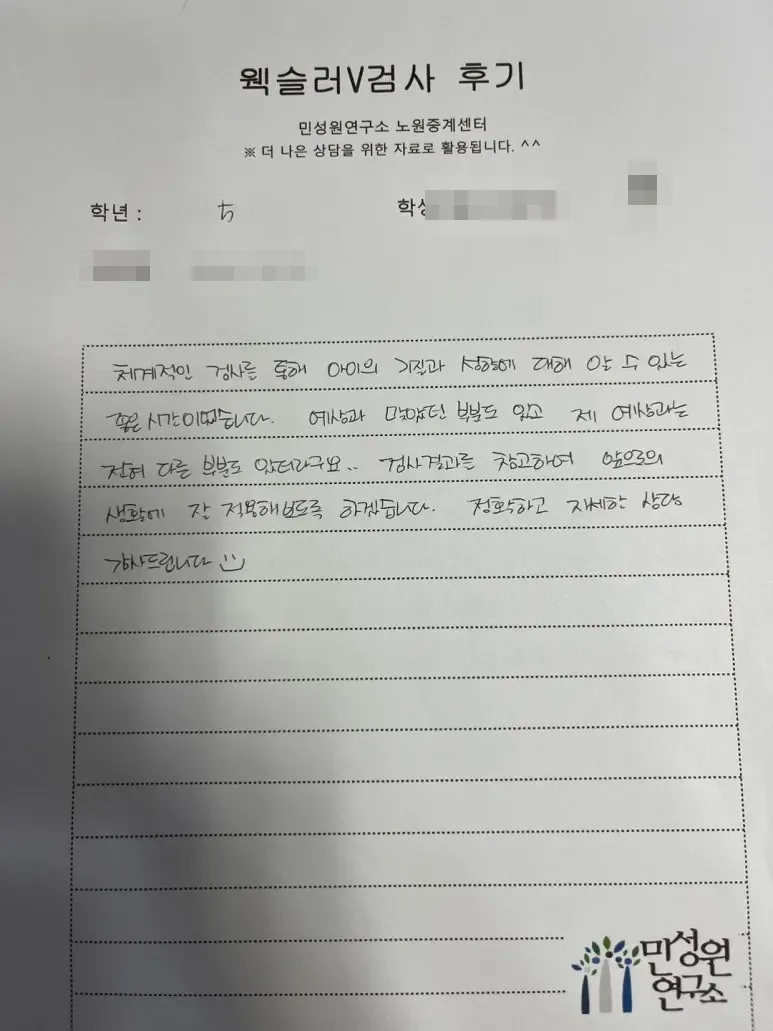 웩슬러V검사 후기
민성원연구소 노원중계센터
※ 더 나은 상담을 위한 자료로 활용됩니다. ^^
학년 : 5
체계적인 검사를 통해 아이의 기질과 성향에 대해 알 수 있는
좋은 시간이었습니다. 예상과 맞았던 부분도 있고 제 예상과는
전혀 다른 부분도 있더라구요.. 검사결과를 참고하여 앞으로의
생활에 잘 적용해보도록 하겠습니다. 정확하고 자세한 상담
감사드립니다
민성원
연구소